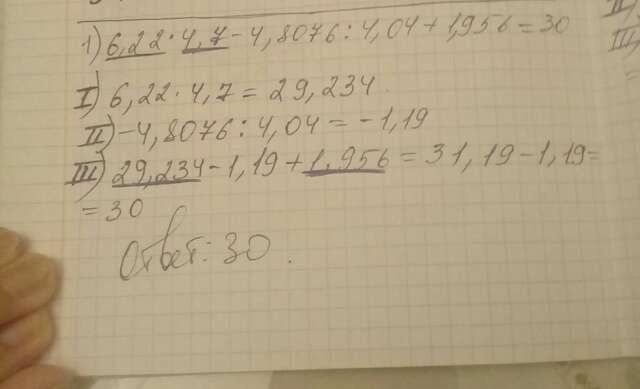 1) 6,22 · 4,7 - 4,8076 : 4,04 + 1,956 = 30
I) 6,22 · 4,7 = 29,234.
II) -4,8076 : 4,04 = -1,19
III) 29,234 - 1,19 + 1.956 = 31,19 - 1,19 =
= 30
Ответ: 30.
II)
III)